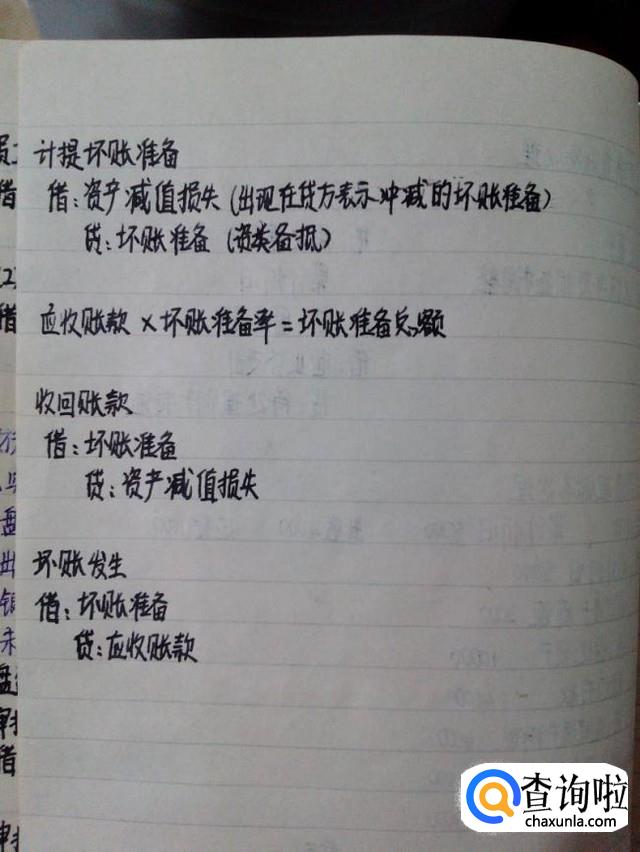 计提坏账准备
借：资产减值损失（出现在贷方表示冲减的坏账准备）
贷：坏账准备（资类备抵）
应收账款 × 坏账准备率 = 坏账准备总额
收回账款
借：坏账准备
贷：资产减值损失
坏账发生
借：坏账准备
贷：应收账款
查询啦
chaxunla.com